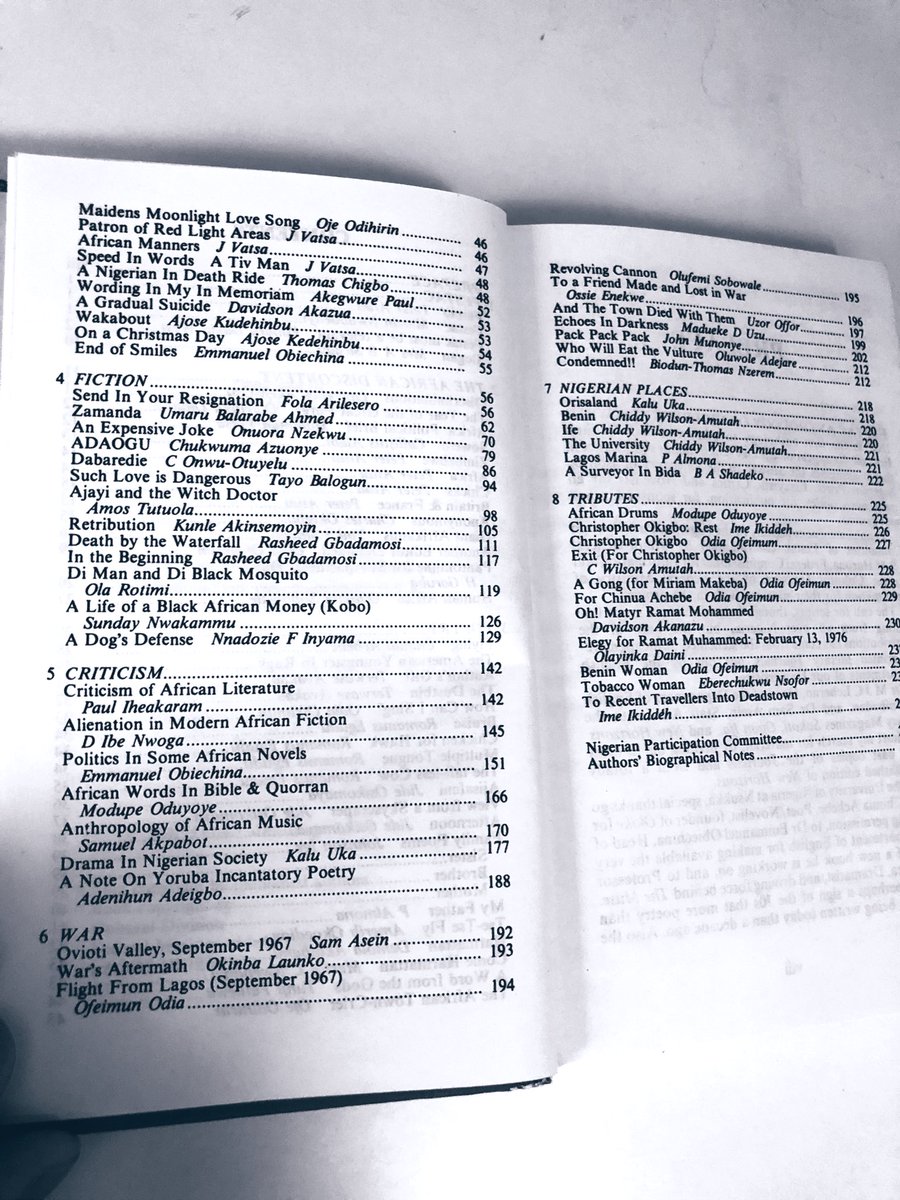 Maidens Moonlight Love Song Oje Odihirin.................. 46
Patron of Red Light Areas J Vatsa.................. 46
African Manners J Vatsa.................. 47
Speed In Words A Tiv Man J Vatsa.................. 48
A Nigerian In Death Ride Thomas Chigbo.................. 48
Wording In My In Memoriam Akegwure Paul.................. 52
A Gradual Suicide Davidson Akazua.................. 53
Wakabout Ajose Kudehinbu.................. 53
On a Christmas Day Ajose Kedehinbu.................. 54
End of Smiles Emmanuel Obiechina.................. 55
4 FICTION.................. 56
Send In Your Resignation Fola Arilesero.................. 56
Zamanda Umaru Balarabe Ahmed.................. 62
An Expensive Joke Onuora Nzekwu.................. 70
ADAOGU Chukwuma Azuonye.................. 79
Dabaredie C Onwu-Otuyelu.................. 86
Such Love is Dangerous Tayo Balogun.................. 94
Ajayi and the Witch Doctor
Amos Tutuola.................. 98
Retribution Kunle Akinsemoyin.................. 105
Death by the Waterfall Rasheed Gbadamosi.................. 111
In the Beginning Rasheed Gbadamosi.................. 117
Di Man and Di Black Mosquito
Ola Rotimi.................. 119
A Life of a Black African Money (Kobo)
Sunday Nwakammu.................. 126
A Dog's Defense Nnadozie F Inyama.................. 129
5 CRITICISM.................. 142
Criticism of African Literature
Paul Iheakaram.................. 142
Alienation in Modern African Fiction
D Ibe Nwoga.................. 145
Politics In Some African Novels
Emmanuel Obiechina.................. 151
African Words In Bible & Quorran
Modupe Oduyoye.................. 166
Anthropology of African Music
Samuel Akpabot.................. 170
Drama In Nigerian Society Kalu Uka.................. 177
A Note On Yoruba Incantatory Poetry
Adenihun Adeigbo.................. 188
6 WAR.................. 192
Ovioti Valley, September 1967 Sam Asein.................. 193
War's Aftermath Okinba Launko..................
Flight From Lagos (September 1967)
Ofeimun Odia.................. 194
Revolving Cannon Olufemi Sobowale.................. 195
To a Friend Made and Lost in War
Ossie Enekwe.................. 196
And The Town Died With Them Uzor Offor.................. 197
Echoes In Darkness Madueke D Uzu.................. 199
Pack Pack Pack John Munonye.................. 202
Who Will Eat the Vulture Oluwole Adejare.................. 212
Condemned!! Biodun-Thomas Nzerem.................. 212
7 NIGERIAN PLACES.................. 218
Orisaland Kalu Uka.................. 218
Benin Chiddy Wilson-Amutah.................. 220
Ife Chiddy Wilson-Amutah.................. 220
The University Chiddy Wilson-Amutah.................. 221
Lagos Marina P Almona.................. 221
A Surveyor In Bida B A Shadeko.................. 222
8 TRIBUTES.................. 225
African Drums Modupe Oduyoye.................. 225
Christopher Okigbo: Rest Ime Ikiddeh.................. 226
Christopher Okigbo Odia Ofeimum.................. 227
Exit (For Christopher Okigbo)
C Wilson Amutah.................. 228
A Gong (for Miriam Makeba) Odia Ofeimun.................. 228
For Chinua Achebe Odia Ofeimun.................. 229
Oh! Matyr Ramat Mohammed
Davidson Akanazu.................. 230
Elegy for Ramat Muhammed: February 13, 1976
Olayinka Daini..................
Benin Woman Odia Ofeimun..................
Tobacco Woman Eberechukwu Nsofor..................
To Recent Travellers Into Deadstown
Ime Ikiddéh..................
Nigerian Participation Committee..................
Authors' Biographical Notes..................